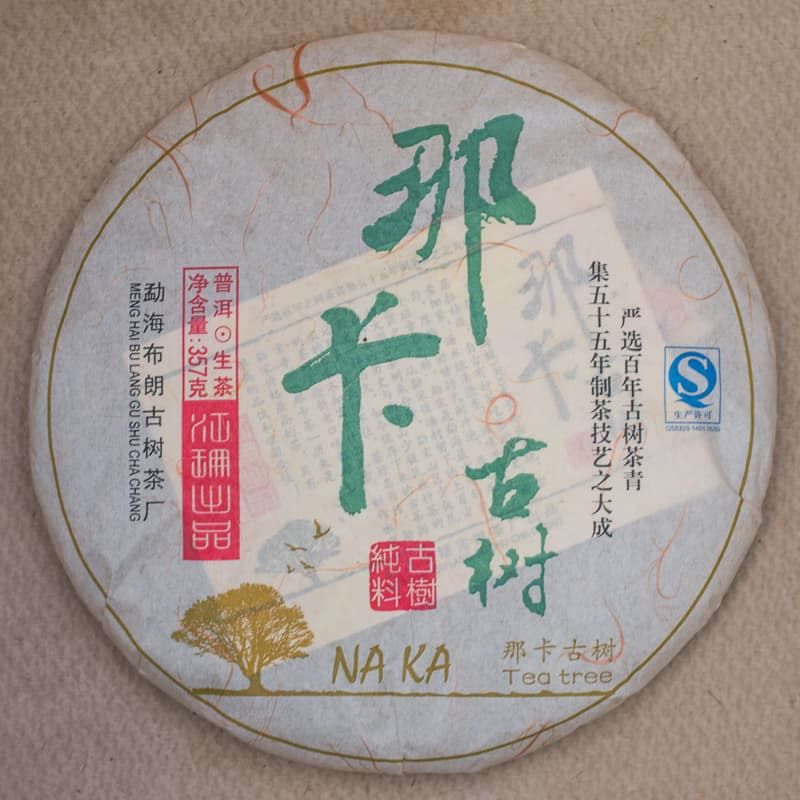 那卡
古树
古樹
純料
严选百年古树茶青
集五十五年制茶技艺之大成
生产许可
普洱⊙生茶
净含量:357克
出品
勐海布朗古树茶厂
MENG HAI BU LANG GU SHU CHA CHANG
NA KA
那卡古树
Tea tree